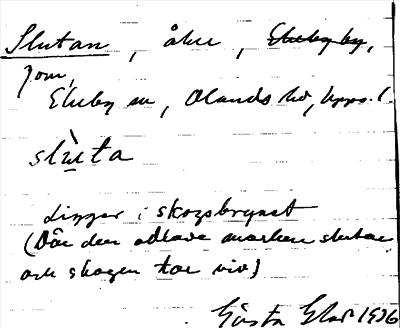 Slutan, åker, Ekeby by,
Jom,
Ekeby sn, Olands hd, Upps. l.
slùta
Ligger i skogsbrynet
(Där den odlade marken slutar
och skogen tar vid)
Gösta 1936